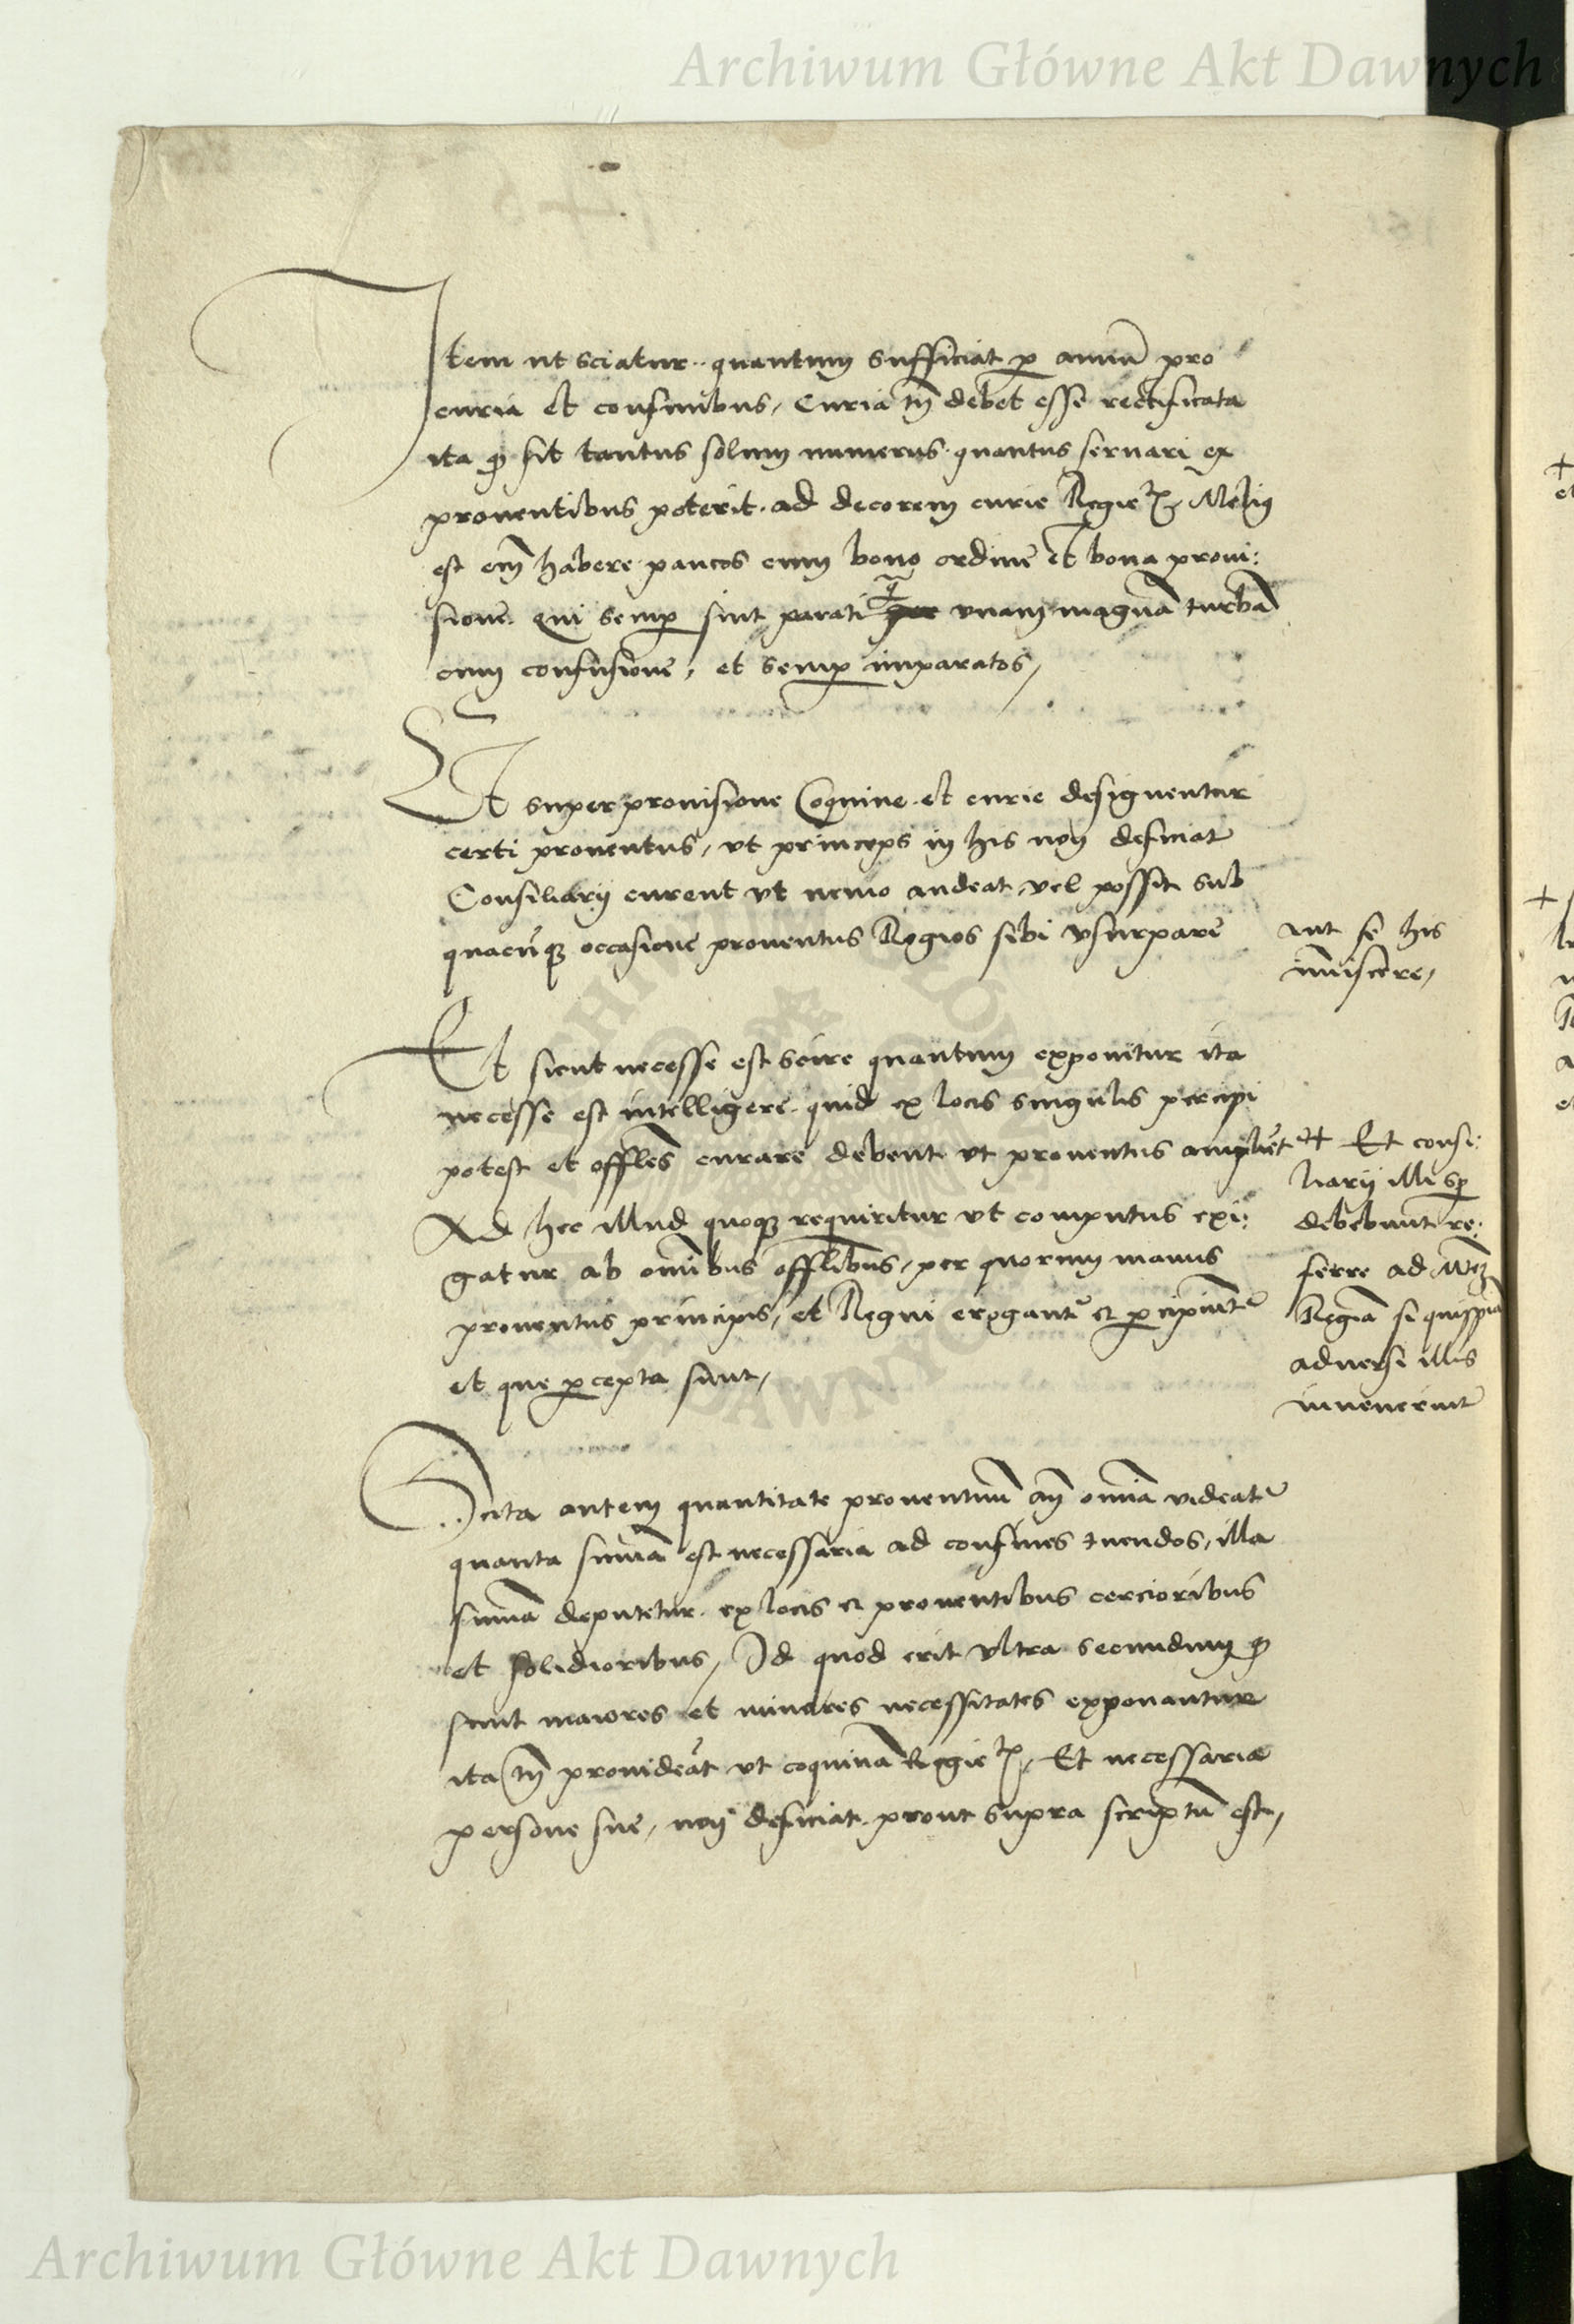 Archiwum Główne Akt Dawnych
Item ut sciatur quantum sufficiat p annũ pro
curia et confinibus, Curia tñ debet esse rectificata
ita ꝙ sit tantus solum numerus quantus servari ex
proventibus poterit ad decorem curie Regie Meliꝯ
est eñ habere paucos cum bono ordinẽ et bona provi:
sione. Qui semp sint parati q̃ unam magnã turbã
cum confusione, et semp imparatos,
Et super provisione Coquine et curie designentur
certi proventus, ut princeps in his non deficiat
Consiliarij curent ut nemo audeat, vel possit sub
quacũqꝫ occasione proventus Regios sibi usurpare
aut se his
im̃iscere,
Et sicut necesse est scire quantum exponitur ita
necesse est intelligere quid ex locis singulis percipi
potest et offles curare debent ut proventus amplient
Ad hec illud quoqꝫ requiritur ut computus exi:
gatur ab omĩbus offlibus, per quorum manus
proventus principis, et Regni erogant̃ et ꝑcipiunt̃
et que ꝑcepta sunt,
+ Et consi:
liarij illi sꝑ
debebunt re:
ferre ad Mtẽ
Regiã si quispiã
adversi illis
invenerint
Scita autem quantitate proventuũ añ omnia videat̃
quanta sum̃a est necessaria ad confines tuendos, illa
sum̃a deputetur ex locis et proventibus cercioribus
et solidioribus, Id quod erit ultra secundum ꝙ
sunt maiores et minores necessitates exponantur
ita tñ provideãt ut coquina Regie Et necessaria
persone sue, non deficiat prout supra scriptũ est,
Archiwum Główne Akt Dawnych